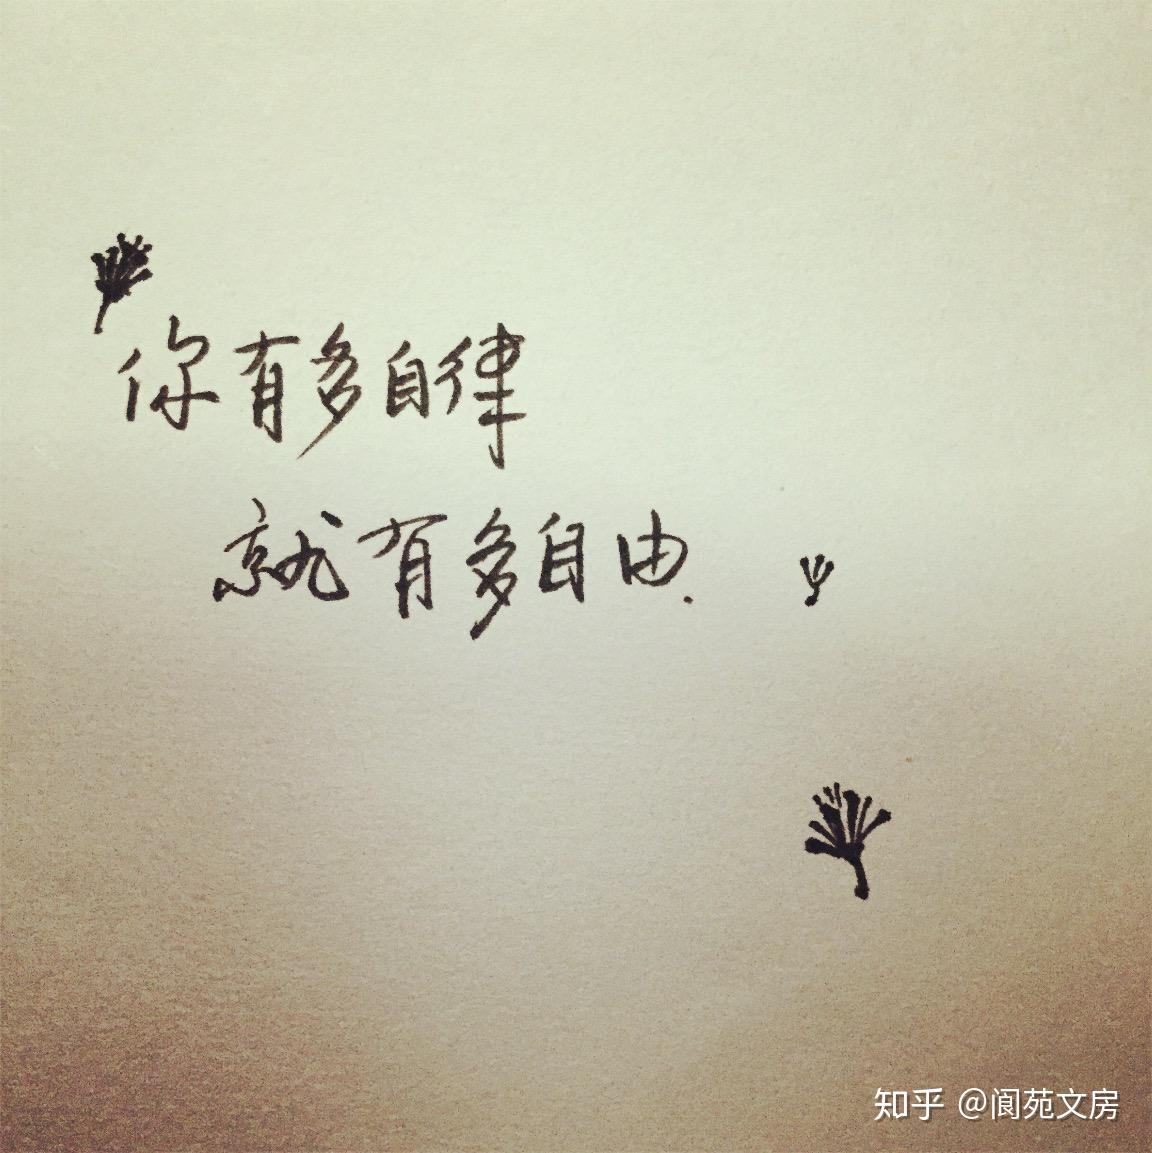 你有多自律
就有多自由.
知乎 @阆苑文房